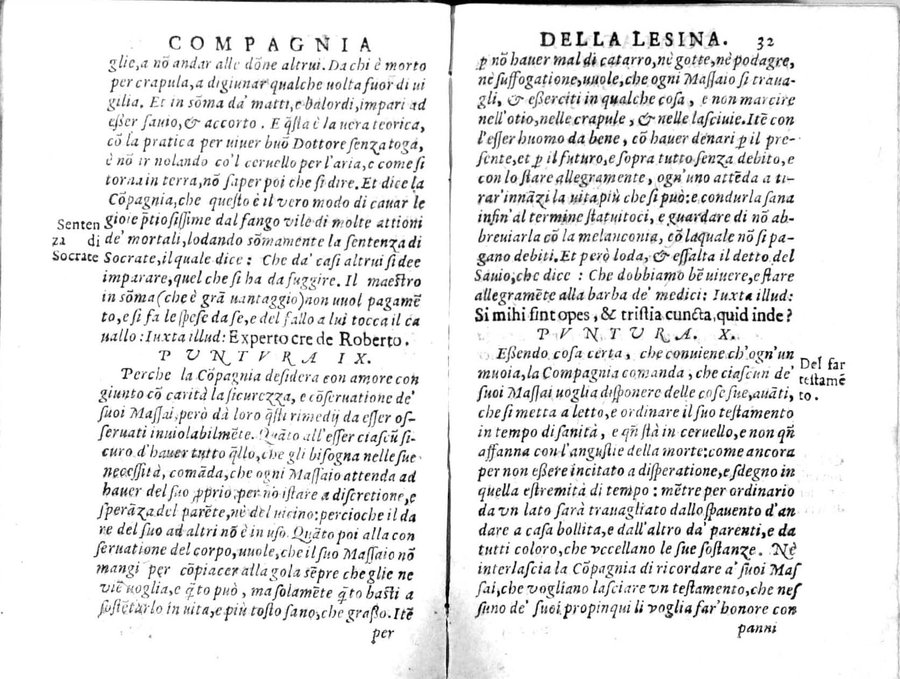 COMPAGNIA
glie, a nõ andar alle dõne altrui. Da chi è morto
per crapula, a digiunar qualche uolta fuor di ui
gilia. Et in sõma da' matti, e balordi, impari ad
esser sauio, & accorto. E q̃sta è la uera teorica,
cõ la pratica per uiuer buõ Dottore senza toga,
è nõ ir uolando co'l ceruello per l'aria, e come si
torna in terra, nõ saper poi che si dire. Et dice la
Cõpagnia, che questo è il vero modo di cauar le
gioie p̃tiosissime dal fango vile di molte attioni
de' mortali, lodando sõmamente la sentenza di
Socrate, il quale dice: Che da' casi altrui si dee
imparare, quel che si ha da fuggire. Il maestro
in sõma (che è grã uantaggio) non uuol pagamẽ
to, e si fa le spese da se, e del fallo a lui tocca il ca
uallo: Iuxta illud: Experto cre de Roberto.
Senten
za di
Socrate
PVNTVRA IX.
Perche la Cõpagnia desidera con amore con
giunto cõ carità la sicurezza, e cõseruatione de'
suoi Massai, però da loro q̃sti rimedij da esser os-
seruati inuiolabilmẽte. Quãto all'esser ciascũ si-
curo d'hauer tutto q̃llo, che gli bisogna nelle sue
necessità, comãda, che ogni Massaio attenda ad
hauer del suo p̃prio, per nõ istare a discretione, e
sperãza del parẽte, nè del uicino: percioche il da
re del suo ad altri nõ è in uso. Quãto poi alla con
seruatione del corpo, uuole, che il suo Massaio nõ
mangi per cõpiacer alla gola sẽpre che glie ne
viẽ uoglia, e q̃to può, ma solamẽte q̃to basti a
sostẽtarlo in uita, e più tosto sano, che grasso. Itẽ
per
DELLA LESINA. 32
p̱ nõ hauer mal di catarro, nè gotte, nè podagre,
nè suffogatione, uuole, che ogni Massaio si traua-
gli, & esserciti in qualche cosa, e non marcire
nell'otio, nelle crapule, & nelle lasciuie. Itẽ con
l'esser huomo da bene, cõ hauer denari p̱ il pre-
sente, et p̱ il futuro, e sopra tutto senza debito, e
con lo stare allegramente, ogn'uno attẽda a ti-
rar'innãzi la uita più che si può: e condurla sana
infin' al termine statuitoci, e guardare di nõ ab-
breuiarla cõ la melanconia, cõ laquale nõ si pa-
gano debiti. Et però loda, & essalta il detto del
Sauio, che dice: Che dobbiamo bẽ uiuere, e stare
allegramẽte alla barba de' medici: Iuxta illud:
Si mihi sint opes, & tristia cuncta, quid inde?
PVNTVRA. X.
Essendo cosa certa, che conuiene ch'ogn'un
muoia, la Compagnia comanda, che ciascun de'
suoi Massai uoglia disponere delle cose sue, auãti,
che si metta a letto, e ordinare il suo testamento
in tempo di sanità, e qñ stà in ceruello, e non qñ
affanna con l'angustie della morte: come ancora
per non essere incitato a disperatione, e sdegno in
quella estremità di tempo: mẽtre per ordinario
da vn lato sarà trauagliato dallo spauento d'an
dare a casa bollita, e dall'altro da' parenti, e da
tutti coloro, che vccellano le sue sostanze. Nè
interlascia la Cõpagnia di ricordare a' suoi Mas
sai, che vogliano lasciare vn testamento, che nes
suno de' suoi propinqui li voglia far' honore con
panni
Del far
testamẽ
to.